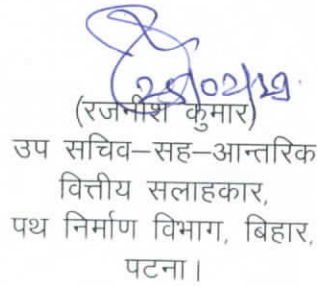 25/02/19
(रजनीश कुमार)
उप सचिव–सह–आन्तरिक
वित्तीय सलाहकार,
पथ निर्माण विभाग, बिहार,
पटना।